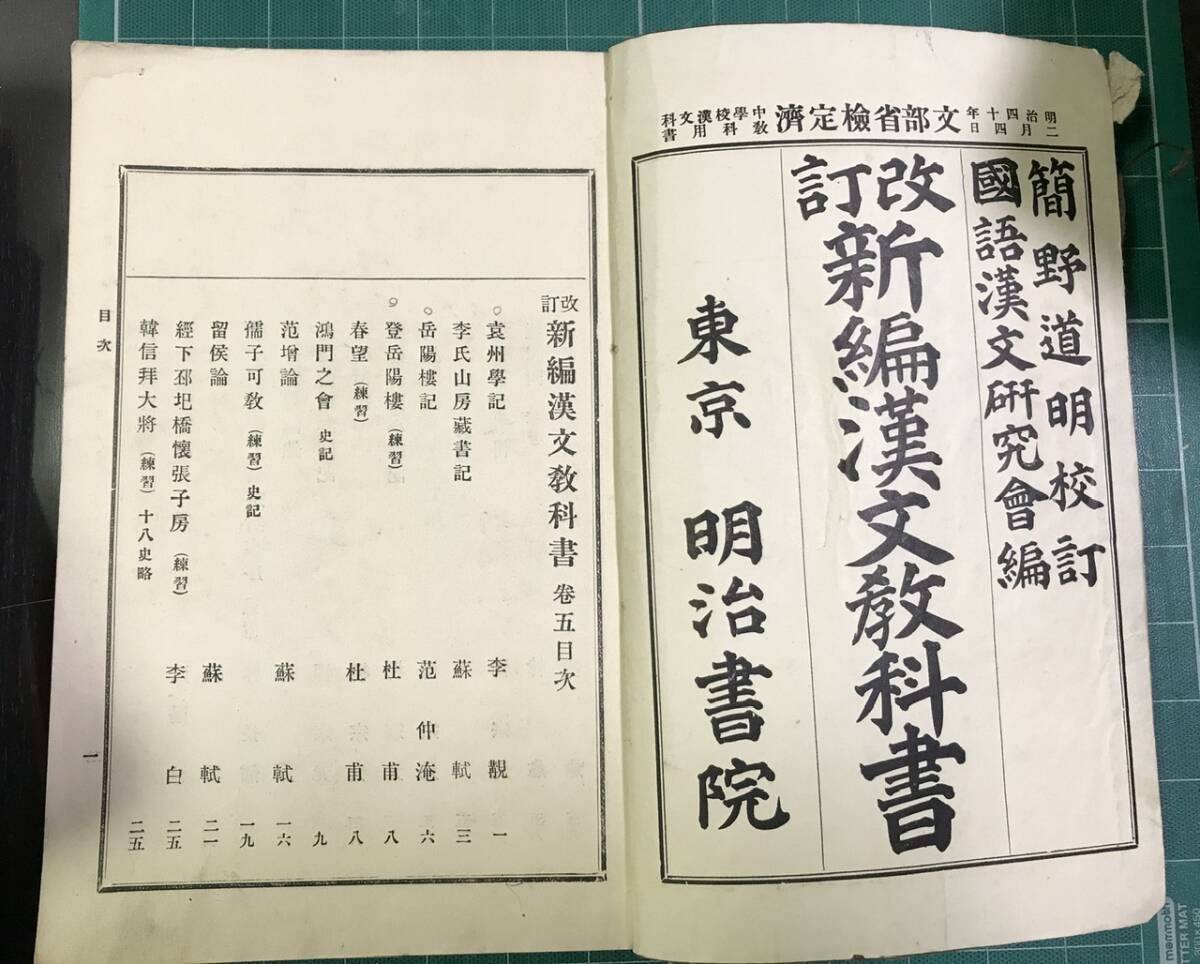 明治四十年
二月四日
文部省檢定濟
中學校漢文科
教科用書
簡野道明校訂
國語漢文研究會編
改訂
新編漢文教科書
東京 明治書院
改訂 新編漢文教科書 卷五目次
袁州學記 李覯 一
李氏山房藏書記 蘇軾 三
岳陽樓記 范仲淹 六
登岳陽樓(練習) 杜甫 八
春望(練習) 杜甫 八
鴻門之會 史記 九
范增論 蘇軾 一六
孺子可教(練習) 史記 一九
留侯論 蘇軾 二一
經下邳圯橋懷張子房(練習) 李白 二五
韓信拜大將(練習) 十八史略 二五
目次
一